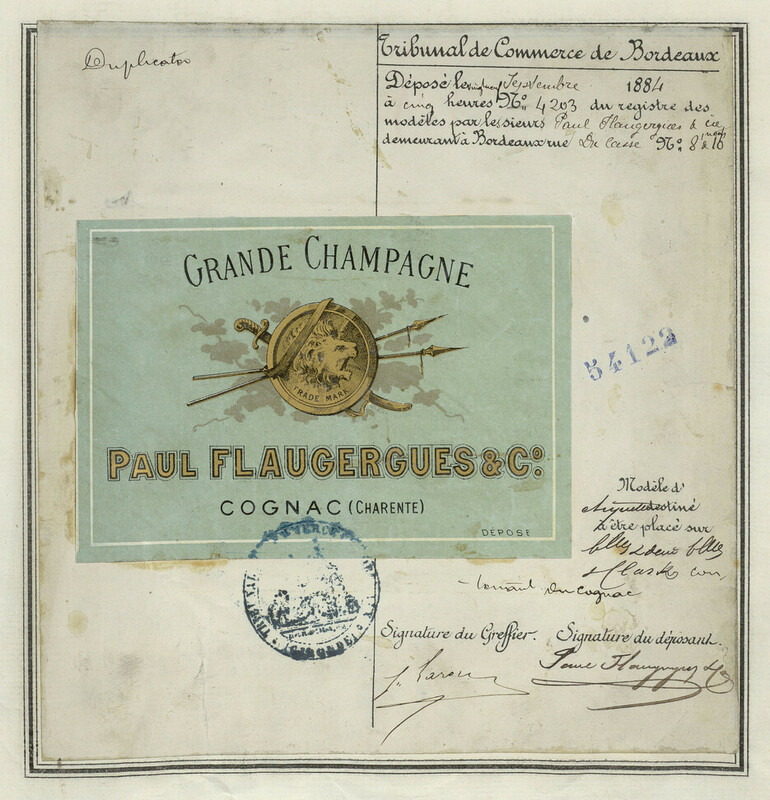 Duplicata
Tribunal de Commerce de Bordeaux
Déposé le Septembre 1884
à cinq heures N° 4203 du registre des
modèles par les sieurs Paul Flaugergues & cie
demeurant à Bordeaux rue Du Casse N° 8 à 16
GRANDE CHAMPAGNE
TRADE MARK
PAUL FLAUGERGUES & Co.
COGNAC (CHARENTE)
DÉPOSÉ
54122
Modèle d'
étiquette destiné
à être placé sur
con
-tenant du cognac
Signature du Greffier. Signature du déposant.
Paul Flaugergues & Co